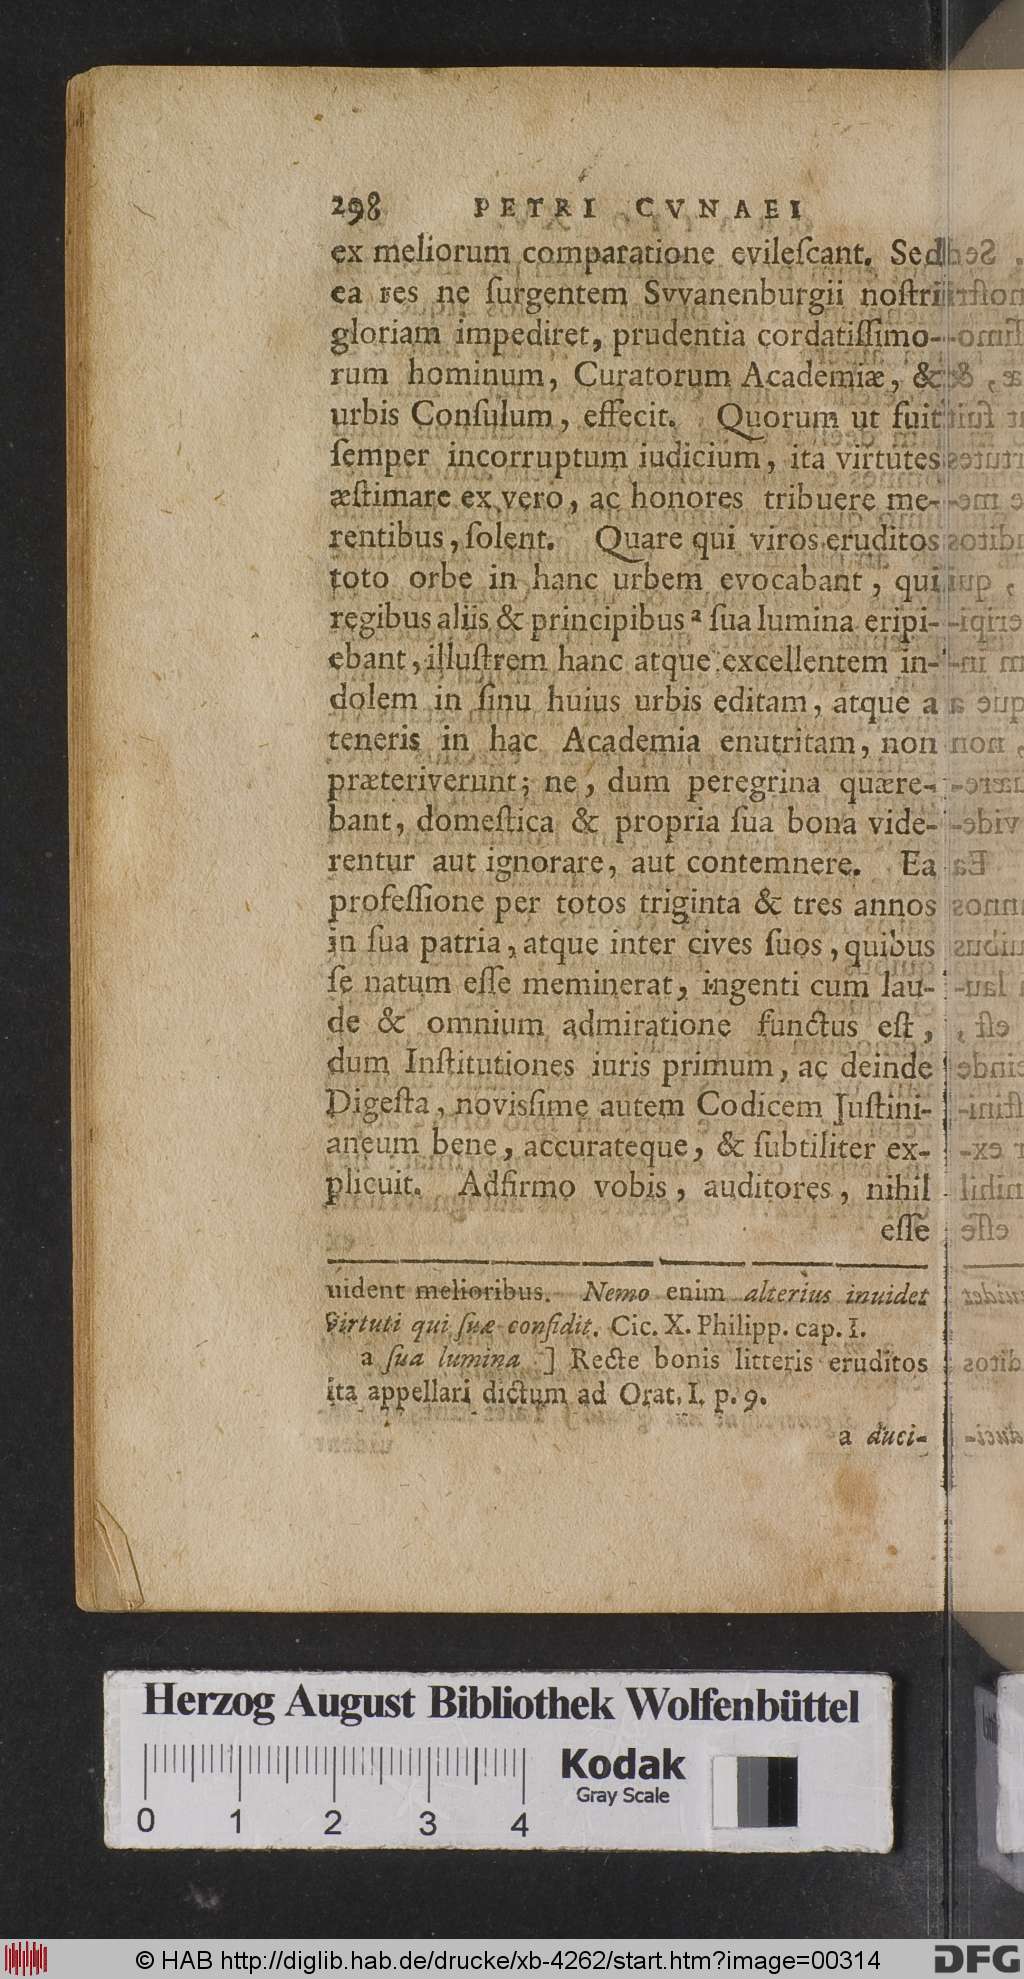 298 PETRI CVNAEI
ex meliorum comparatione evileſcant. Sed
ea res ne ſurgentem Svvanenburgii noſtri
gloriam impediret, prudentia cordatiſſimo-
rum hominum, Curatorum Academiæ, &
urbis Conſulum, effecit. Quorum ut fuit
ſemper incorruptum iudicium, ita virtutes
æſtimare ex vero, ac honores tribuere me-
rentibus, ſolent. Quare qui viros eruditos
toto orbe in hanc urbem evocabant, qui
regibus aliis & principibus a ſua lumina eripi-
ebant, illuſtrem hanc atque excellentem in-
dolem in ſinu huius urbis editam, atque a
teneris in hac Academia enutritam, non
præteriverunt; ne, dum peregrina quære-
bant, domeſtica & propria ſua bona vide-
rentur aut ignorare, aut contemnere. Ea
profeſſione per totos triginta & tres annos
in ſua patria, atque inter cives ſuos, quibus
ſe natum eſſe meminerat, ingenti cum lau-
de & omnium admiratione functus eſt,
dum Inſtitutiones iuris primum, ac deinde
Digeſta, noviſſime autem Codicem Juſtini-
aneum bene, accurateque, & ſubtiliter ex-
plicuit. Adfirmo vobis, auditores, nihil
eſſe
uident melioribus. Nemo enim alterius inuidet
virtuti qui ſuæ confidit. Cic. X. Philipp. cap. I.
a ſua lumina ] Recte bonis litteris eruditos
ita appellari dictum ad Orat. I. p. 9.
a duci-
Herzog August Bibliothek Wolfenbüttel
Kodak
Gray Scale
0 1 2 3 4
© HAB http://diglib.hab.de/drucke/xb-4262/start.htm?image=00314
DFG